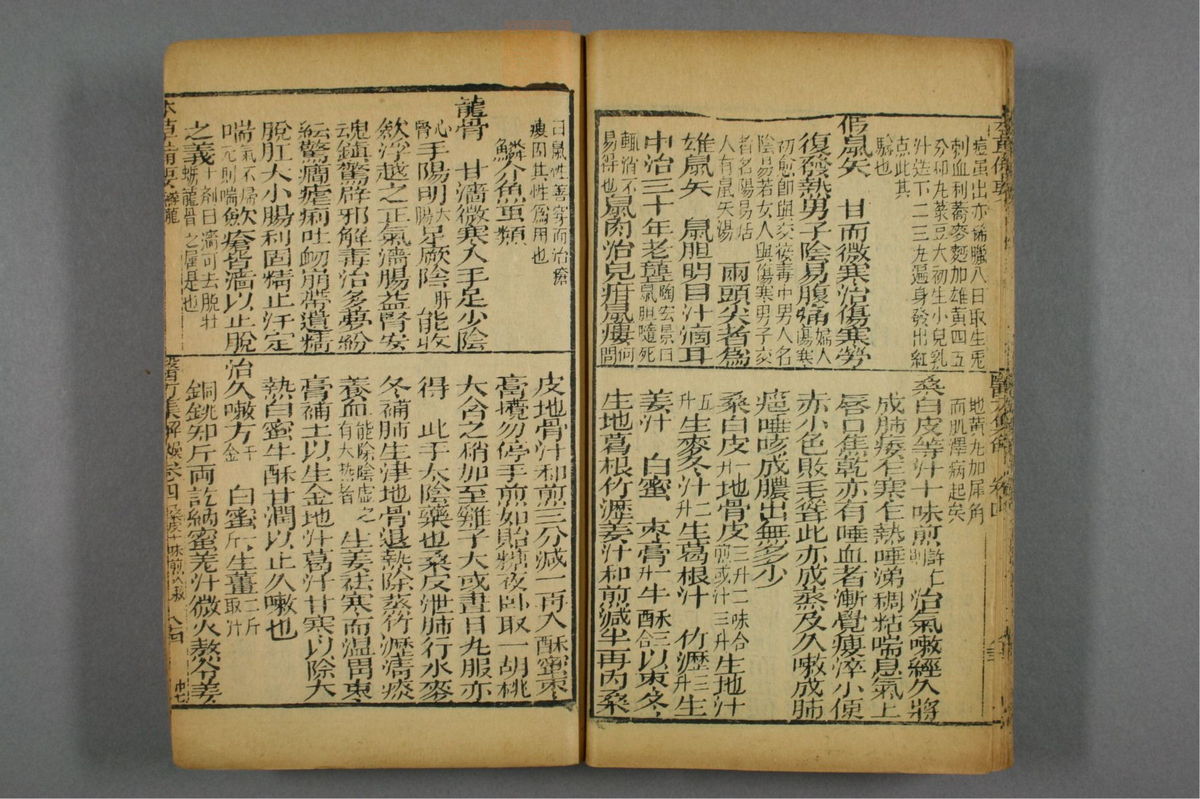 痘虽出亦稀臘八日取生兎
刺血利蕎麥麵加雄黃四五
分和丸菉豆大初生小兒乳
汁送下二三丸遍身發出紅
点此其
驗也
猳鼠矢　甘而微寒治傷寒勞
復發熱男子陰易腹痛婦人傷寒
初愈卽與交接毒中男人名
陰易若女人與傷寒男子交
者名陽易㕥
人有鼠矢湯　兩頭尖者爲
雄鼠矢　鼠胆明目汁滴耳
中治三十年老聾陶宏景曰鼠胆隨死
輒消不易得也鼠肉治兒疳鼠瘻何間
醫方集解　卷四
地黃丸加犀角
而肌澤病起矣
桑白皮等汁十味煎許仁治氣嗽經久將
成肺痿乍寒乍熱唾涕稠粘喘息氣上
唇口焦乾亦有唾血者漸覺瘦瘁小便
赤小色敗毛聳此亦成蒸及久嗽成肺
疽唾咳成膿出無多少
桑白皮一升地骨皮三升二味合煎或汁三升生地汁
五升生麥冬汁二升生葛根汁　竹瀝三升生
姜汁　白蜜　枣膏一升牛酥三合以枣冬
生地葛根竹瀝姜汁和煎減半再內桑
曰鼠性善穿而治瘡
瘻因其性爲用也
鱗介魚虫類
龍骨　甘濇微寒入手足少陰
心腎手陽明大腸足厥陰肝能收
斂浮越之正氣濇腸益腎安
魂鎮驚辟邪解毒治多夢紛
紜驚癇瘧痢吐衂崩帶遺精
脫肛大小腸利固精止汗定
喘氣不歸元則喘斂瘡皆濇以止脫
之義十劑曰濇可去脫牡蛎龍骨之屬是也
本草備要鱗龍
皮地骨汁和煎三分減一再入酥蜜枣
膏攪勿停手煎如飴糖夜卧取一胡桃
大含之稍加至雞子大或晝日丸服亦
得　此手太陰藥也桑皮泄肺行水麥
冬補肺生津地骨退熱除蒸竹瀝清痰
養血能除陰虚之有大熱者生姜祛寒而溫胃枣
膏補土以生金地汁葛汁甘寒以除大
熱白蜜牛酥甘潤以止久嗽也
治久嗽方千金　白蜜一斤生薑二斤取汁
銅銚知斤両訖納蜜姜汁微火熬令姜
醫方集解　卷四